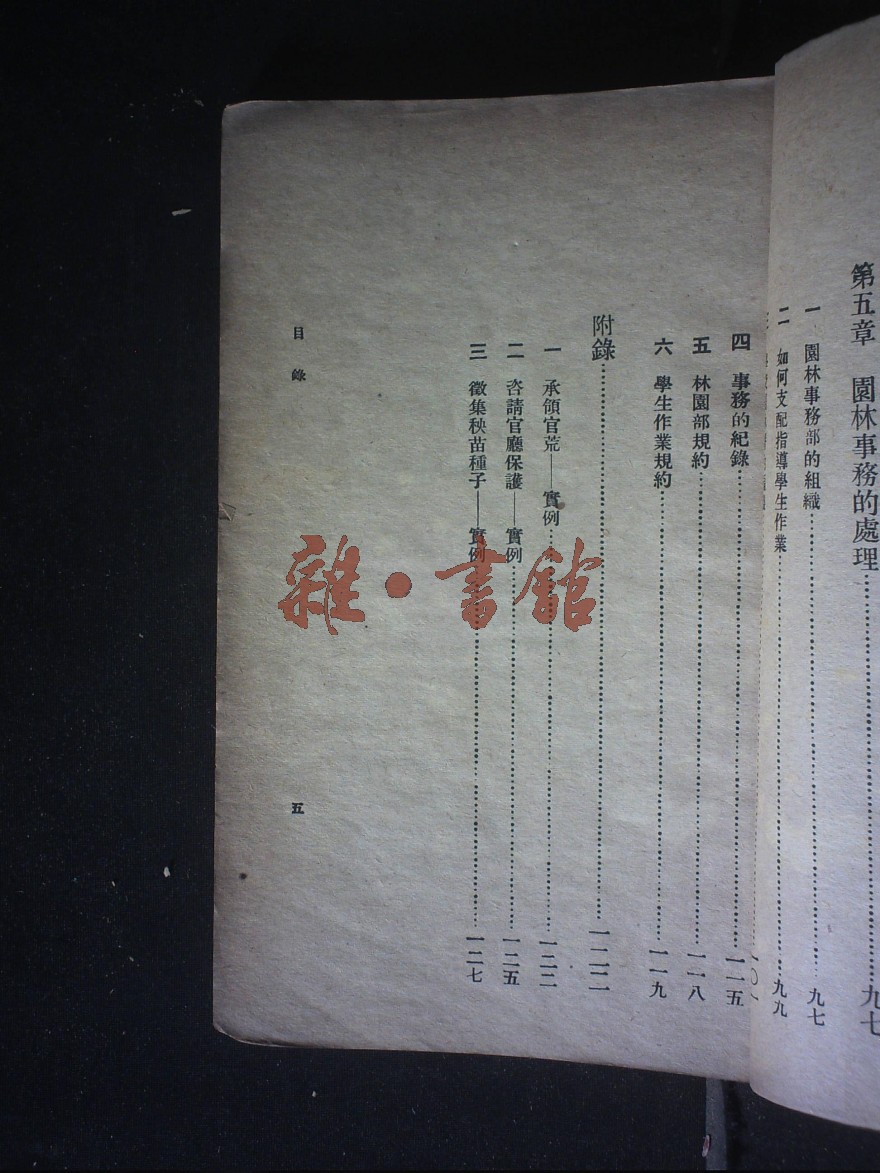 第五章　園林事務的處理……九七
一　園林事務部的組織……九七
二　如何支配指導學生作業……九九
四　事務的紀錄……一一五
五　林園部規約……一一八
六　學生作業規約……一一九
附錄……一二二
一　承領官荒——實例……一二二
二　咨請官廳保護——實例……一二五
三　徵集秧苗種子——實例……一二七
目錄
五
雜·書館